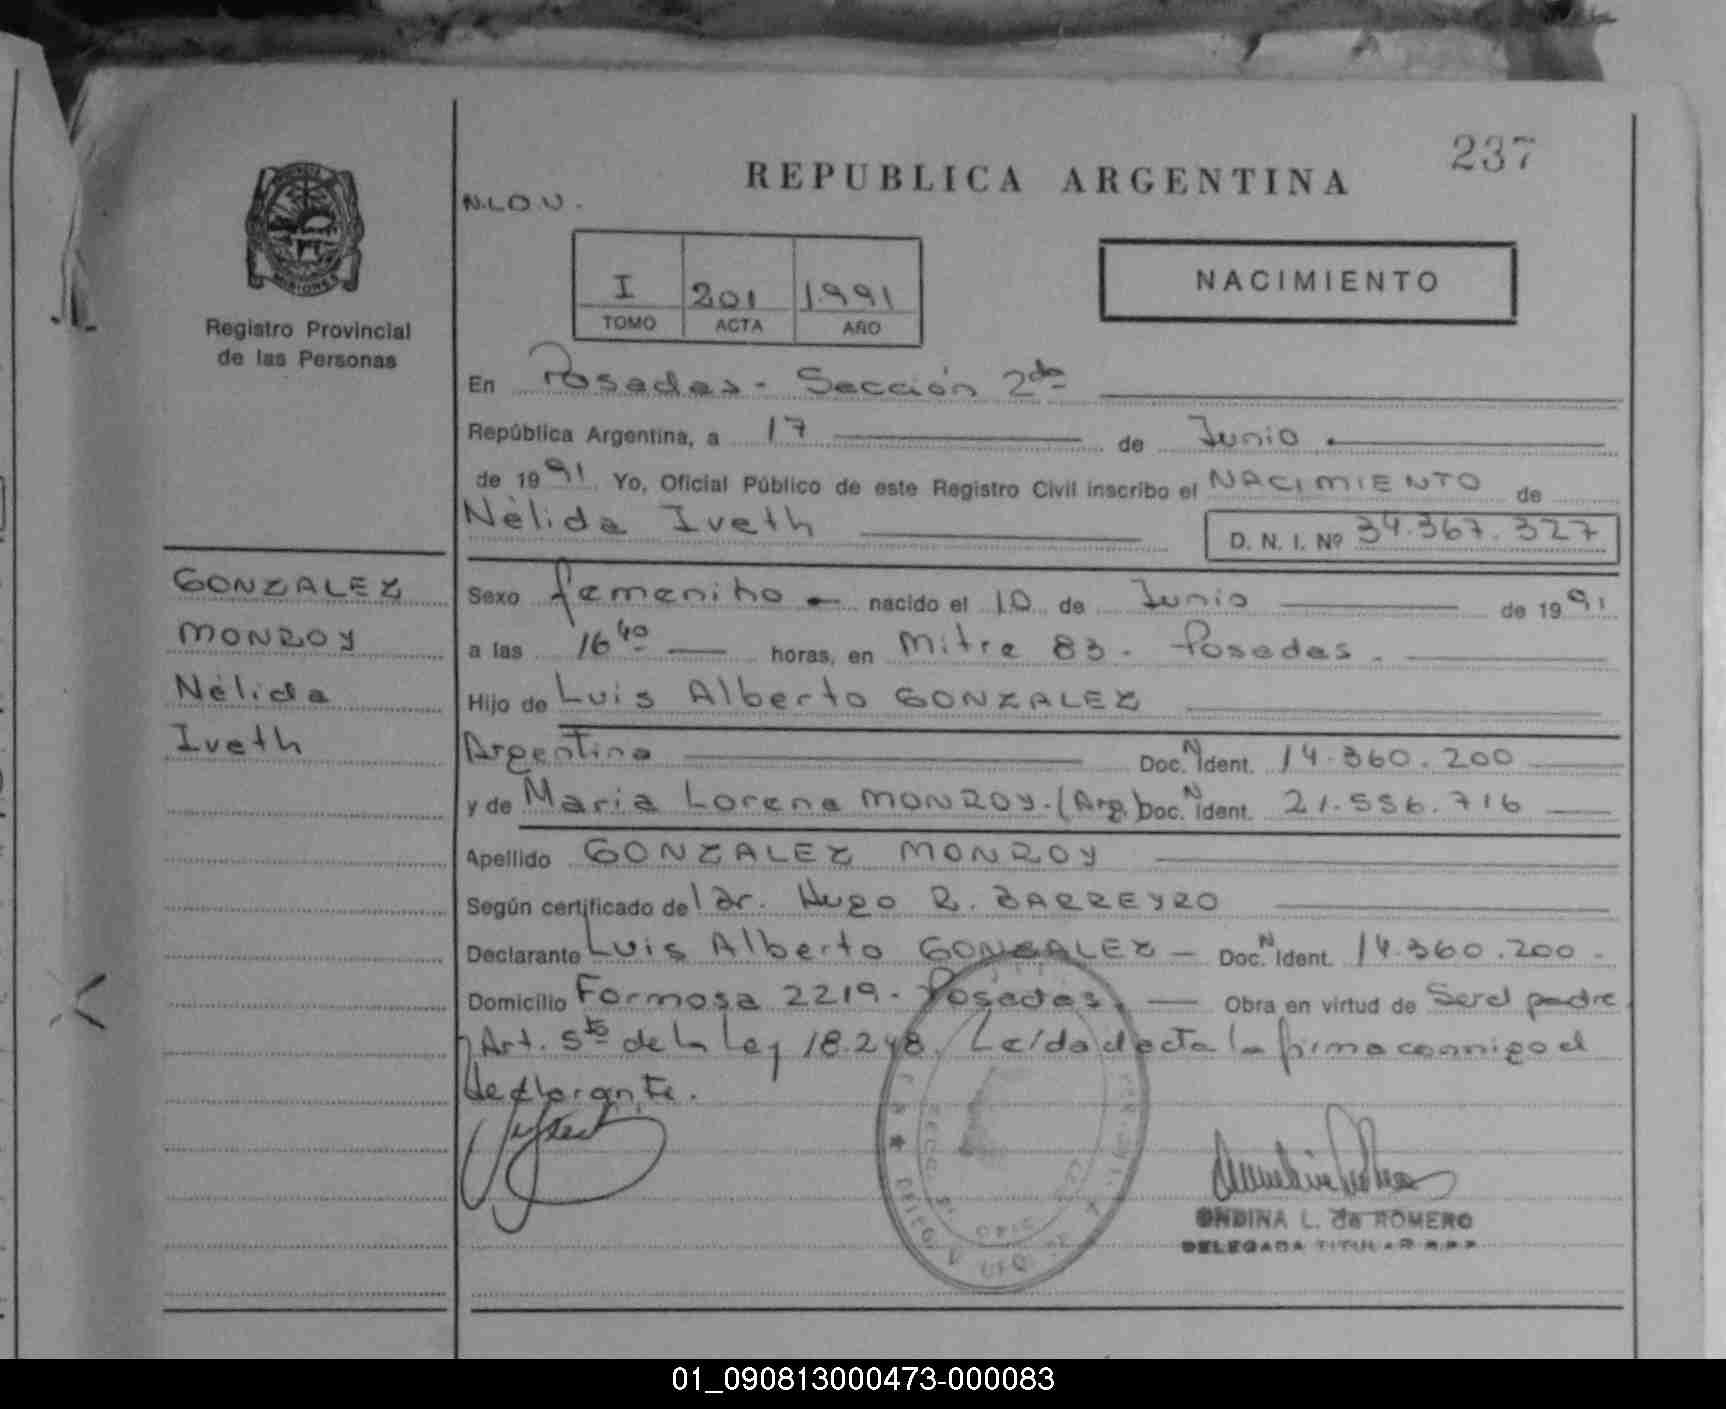 237
REPUBLICA ARGENTINA
N.L.O.V.
MISIONES
Registro Provincial
de las Personas
I 201 1991
TOMO ACTA AÑO
NACIMIENTO
En Posadas - Sección 2da
República Argentina, a 17 de Junio
de 1991 Yo, Oficial Público de este Registro Civil inscribo el NACIMIENTO de
Nélida Iveth D. N. I. Nº 34.367.327
GONZALEZ
MONROY
Nélida
Iveth
Sexo femenino - nacido el 10 de Junio de 1991
a las 16 40 horas, en Mitre 83 - Posadas.
Hijo de Luis Alberto GONZALEZ
Argentino Doc. N Ident. 14.360.200
y de Maria Lorena MONROY. (Arg.) Doc. N Ident. 21.556.716
Apellido GONZALEZ MONROY
Según certificado del Dr. Hugo R. BARREYRO
Declarante Luis Alberto GONZALEZ - Doc. N Ident. 14.360.200 -
Domicilio Formosa 2219 - Posadas. - Obra en virtud de Ser el padre
Art. 5to de la Ley 18.248. Leída el acta la firma conmigo el
declarante.
ONDINA L. de ROMERO
DELEGADA TITULAR R.P.P.
01_090813000473-000083